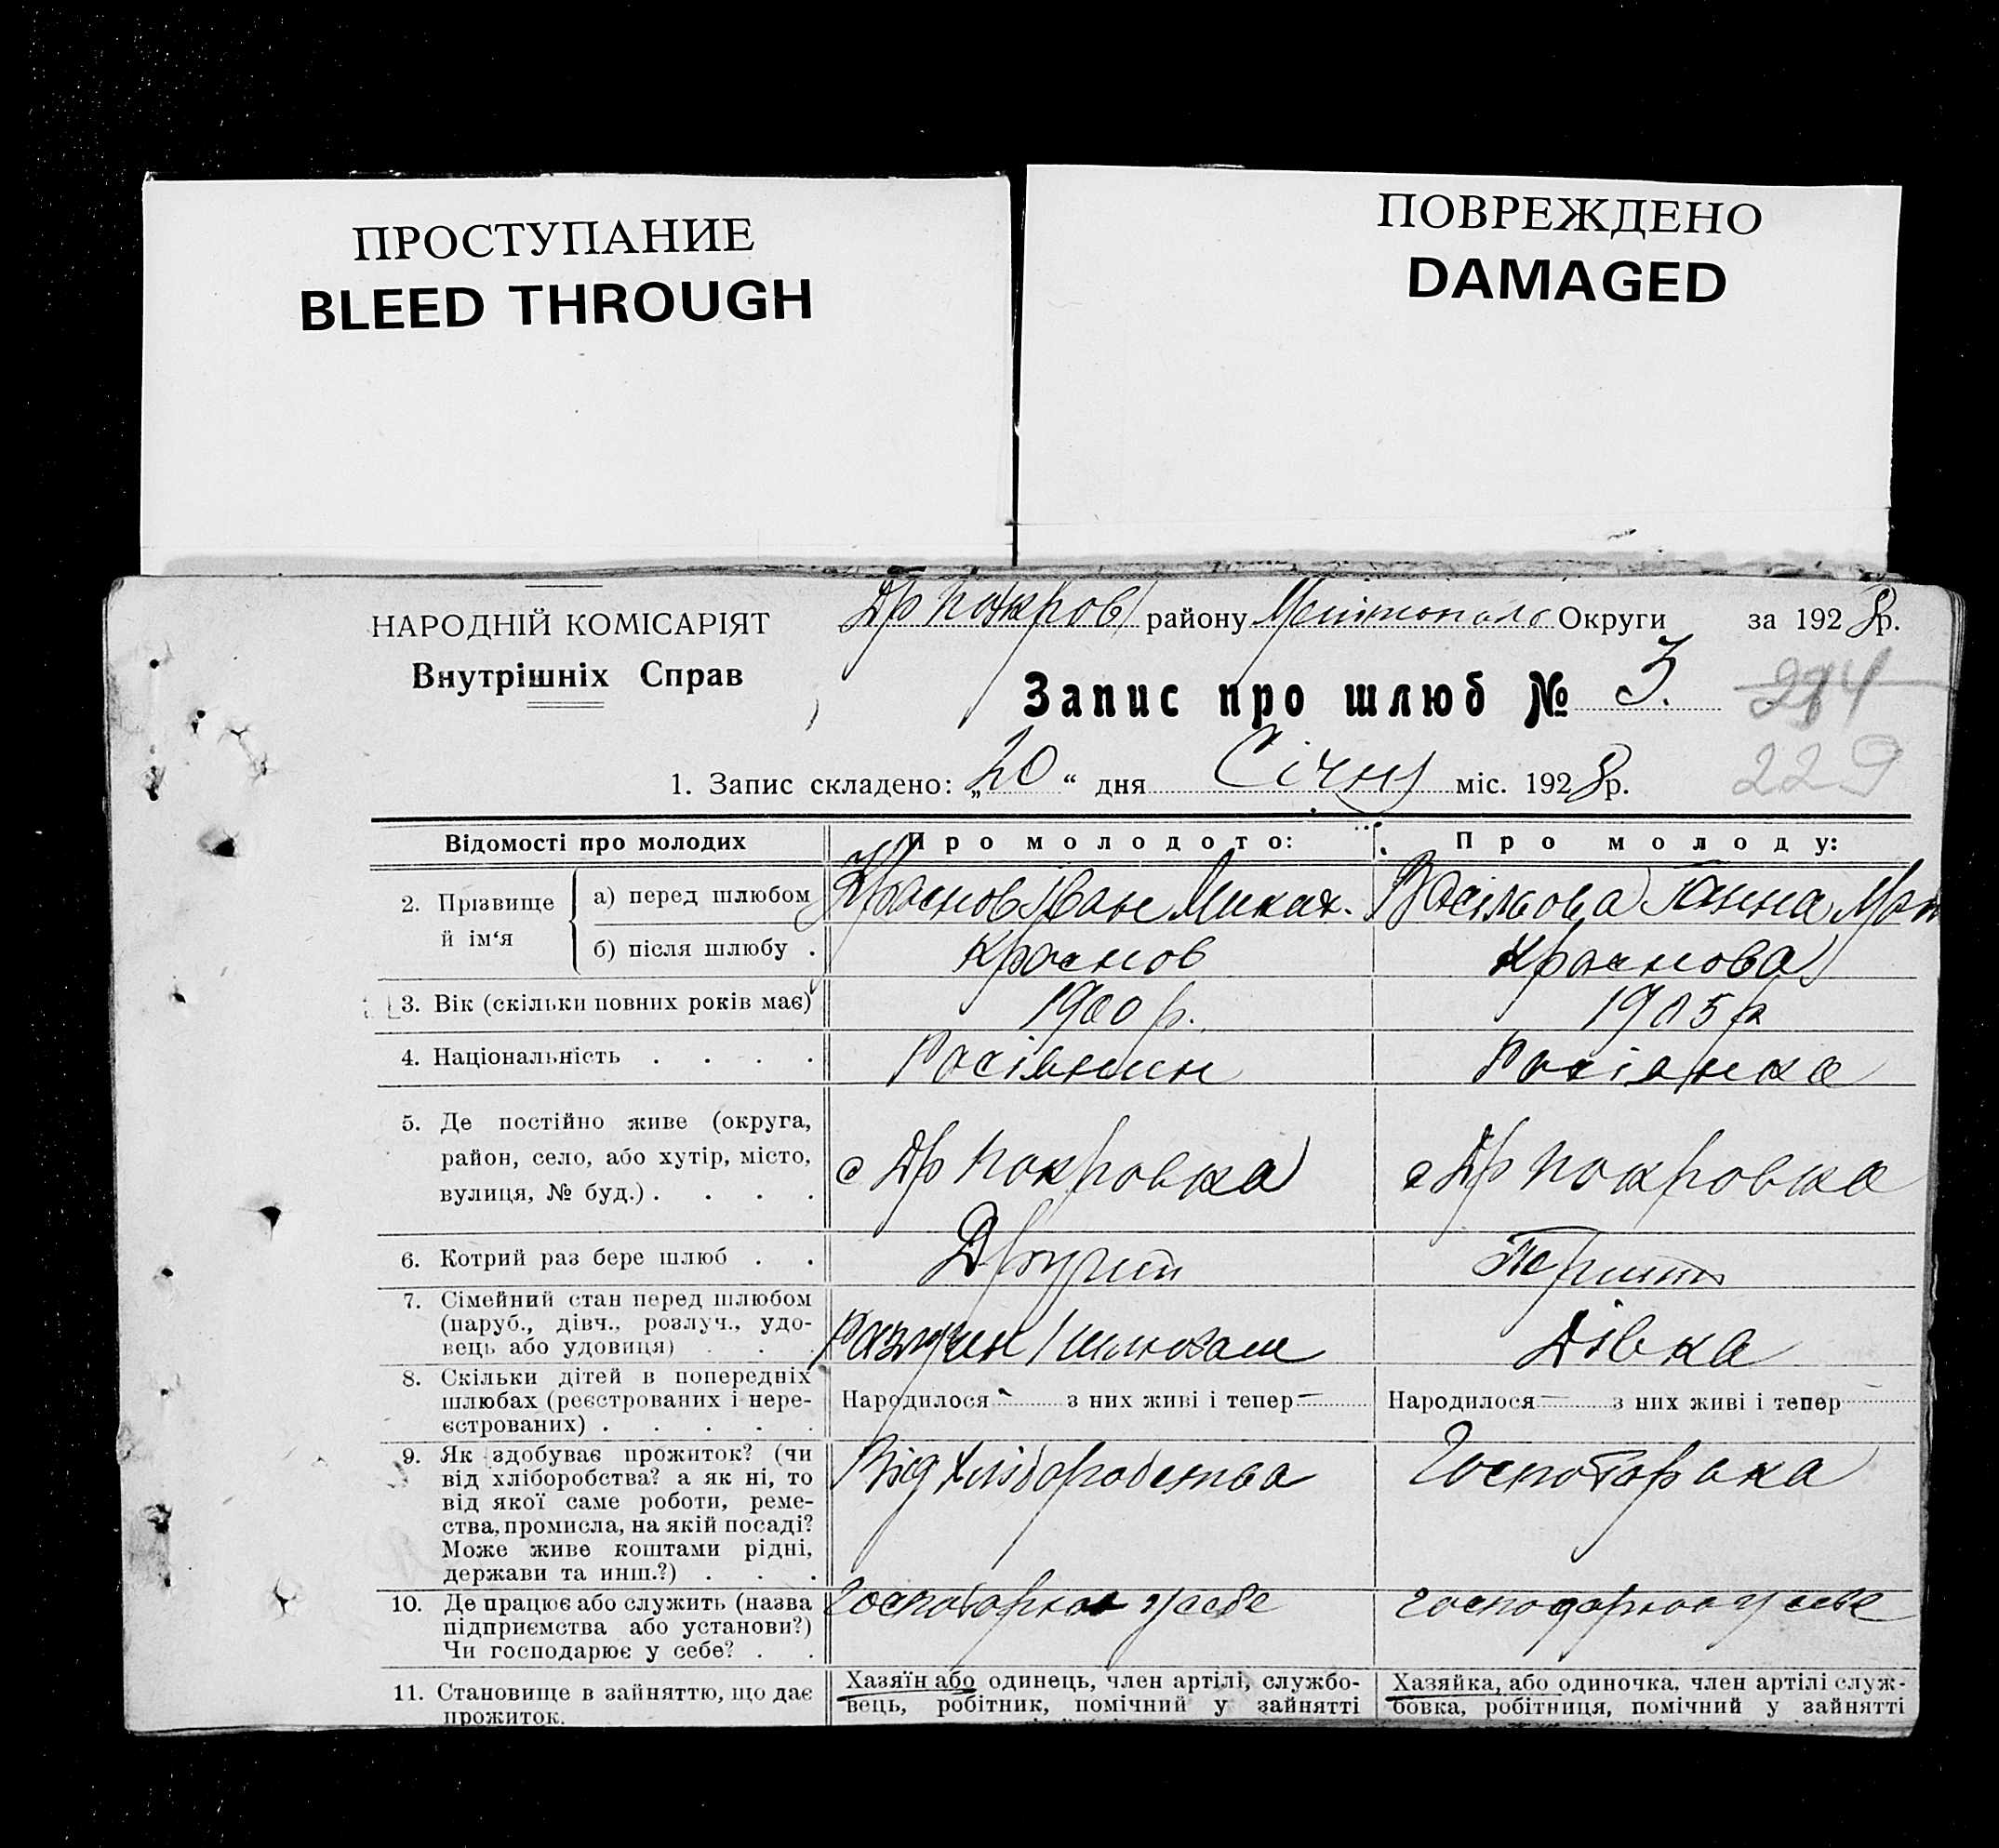 ПРОСТУПАНИЕ
BLEED THROUGH
ПОВРЕЖДЕНО
DAMAGED
НАРОДНІЙ КОМІСАРІЯТ
Внутрішніх Справ
Др Покров району Мелітополь Округи за 1928р.
Запис про шлюб № 3.
294
229
1. Запис складено: „20“ дня Січня міс. 1928р.
Відомості про молодих
Про молодого:
Про молоду:
2. Прізвище й ім‘я
а) перед шлюбом
Краснов Іван Миках.
Васільова Ганна
б) після шлюбу .
Краснов
Краснова
3. Вік (скільки повних років має)
1900 р.
1905 р
4. Національність . . . .
Росіянин
Росіянка
5. Де постійно живе (округа,
район, село, або хутір, місто,
вулиця, № буд.) . . . .
с Др Покровка
с Др Покровка
6. Котрий раз бере шлюб . .
Другий
Перший
7. Сімейний стан перед шлюбом
(паруб., дівч., розлуч., удо-
вець або удовиця) . . .
Дівка
8. Скільки дітей в попередніх
шлюбах (реєстрованих і нере-
єстрованих) . . . . .
Народилося — з них живі і тепер —
Народилося — з них живі і тепер
9. Як здобуває прожиток? (чи
від хліборобства? а як ні, то
від якої саме роботи, реме-
ства, промисла, на якій посаді?
Може живе коштами рідні,
держави та инш.?) . . .
Від хліборобства
10. Де працює або служить (назва
підприємства або установи?)
Чи господарює у себе? . .
господарює у себе
господарює у себе
11. Становище в зайняттю, що дає
прожиток.
Хазяїн або одинець, член артілі, службо-
вець, робітник, помічний у зайнятті
Хазяйка, або одиночка, член артілі служ-
бовка, робітниця, помічний у зайнятті